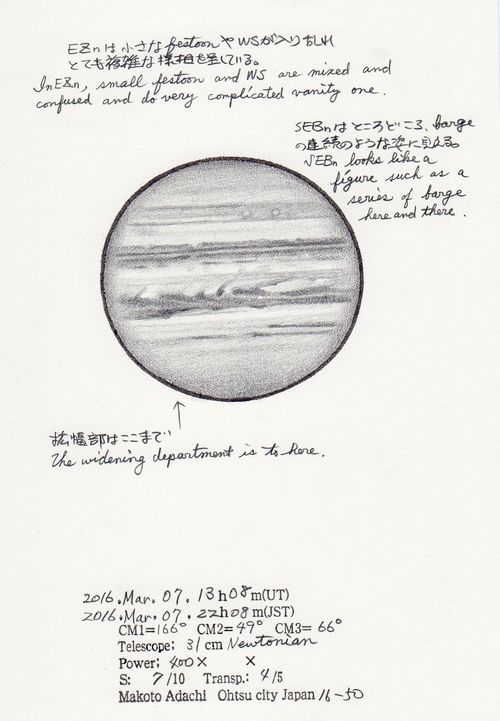 EZnは小さなfestoonやWSが入り乱れ
とても複雑な様相を呈している。
In EZn, small festoon and WS are mixed and
confused and do very complicated vanity one.
SEBnはところどころ、barge
の連続のような姿に見える。
SEBn looks like a
figure such as a
series of barge
here and there.
拡幅部はここまで
The widening department is to here.
2016.Mar.07.13h08m(UT)
2016.Mar.07.22h08m(JST)
CM1=166° CM2=49° CM3=66°
Telescope: 31cm Newtonian
Power: 400× ×
S: 7/10 Transp.: 4/5
Makoto Adachi Ohtsu city Japan 16-50